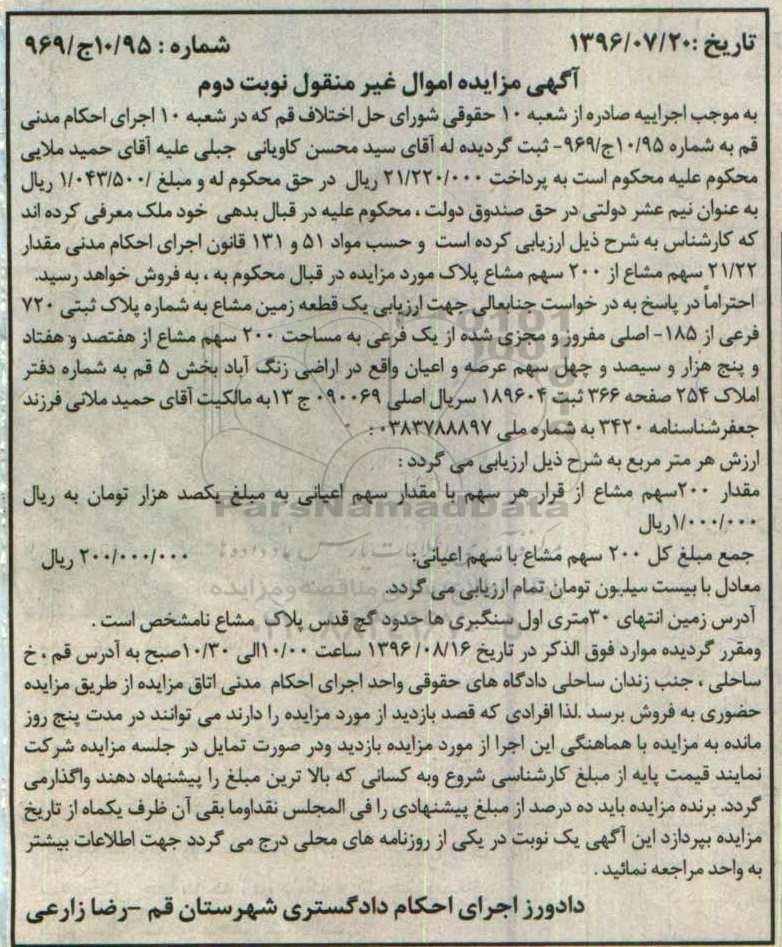 تاریخ :۱۳۹۶/۰۷/۲۰ شماره : ۱۰/۹۵ج/۹۶۹
آگهی مزایده اموال غیر منقول نوبت دوم
به موجب اجراییه صادره از شعبه ۱۰ حقوقی شورای حل اختلاف قم که در شعبه ۱۰ اجرای احکام مدنی
قم به شماره ۱۰/۹۵ج/۹۶۹- ثبت گردیده له آقای سید محسن کاویانی جبلی علیه آقای حمید ملایی
محکوم علیه محکوم است به پرداخت ۲۱/۲۲۰/۰۰۰ ریال در حق محکوم له و مبلغ /۱/۰۴۳/۵۰۰ ریال
به عنوان نیم عشر دولتی در حق صندوق دولت ، محکوم علیه در قبال بدهی خود ملک معرفی کرده اند
که کارشناس به شرح ذیل ارزیابی کرده است و حسب مواد ۵۱ و ۱۳۱ قانون اجرای احکام مدنی مقدار
۲۱/۲۲ سهم مشاع از ۲۰۰ سهم مشاع پلاک مورد مزایده در قبال محکوم به ، به فروش خواهد رسید.
احتراماً در پاسخ به در خواست جنابعالی جهت ارزیابی یک قطعه زمین مشاع به شماره پلاک ثبتی ۷۲۰
فرعی از ۱۸۵- اصلی مفروز و مجزی شده از یک فرعی به مساحت ۲۰۰ سهم مشاع از هفتصد و هفتاد
و پنج هزار و سیصد و چهل سهم عرصه و اعیان واقع در اراضی زنگ آباد بخش ۵ قم به شماره دفتر
املاک ۲۵۴ صفحه ۳۶۶ ثبت ۱۸۹۶۰۴ سریال اصلی ۰۹۰۰۶۹ ج ۱۳به مالکیت آقای حمید ملائی فرزند
جعفرشناسنامه ۳۴۲۰ به شماره ملی ۰۳۸۳۷۸۸۸۹۷ :
ارزش هر متر مربع به شرح ذیل ارزیابی می گردد :
مقدار ۲۰۰سهم مشاع از قرار هر سهم با مقدار سهم اعیانی به مبلغ یکصد هزار تومان به ریال
۱/۰۰۰/۰۰۰ریال
جمع مبلغ کل ۲۰۰ سهم مشاع با سهم اعیانی: ۲۰۰/۰۰۰/۰۰۰ ریال
معادل با بیست میلیون تومان تمام ارزیابی می گردد.
آدرس زمین انتهای ۳۰متری اول سنگبری ها حدود گچ قدس پلاک مشاع نامشخص است .
ومقرر گردیده موارد فوق الذکر در تاریخ ۱۳۹۶/۰۸/۱۶ ساعت ۱۰/۰۰الی ۱۰/۳۰صبح به آدرس قم ، خ
ساحلی ، جنب زندان ساحلی دادگاه های حقوقی واحد اجرای احکام مدنی اتاق مزایده از طریق مزایده
حضوری به فروش برسد .لذا افرادی که قصد بازدید از مورد مزایده را دارند می توانند در مدت پنج روز
مانده به مزایده با هماهنگی این اجرا از مورد مزایده بازدید ودر صورت تمایل در جلسه مزایده شرکت
نمایند قیمت پایه از مبلغ کارشناسی شروع وبه کسانی که بالا ترین مبلغ را پیشنهاد دهند واگذارمی
گردد. برنده مزایده باید ده درصد از مبلغ پیشنهادی را فی المجلس نقداوما بقی آن ظرف یکماه از تاریخ
مزایده بپردازد این آگهی یک نوبت در یکی از روزنامه های محلی درج می گردد جهت اطلاعات بیشتر
به واحد مراجعه نمائید .
دادورز اجرای احکام دادگستری شهرستان قم -رضا زارعی
ParsNamadData